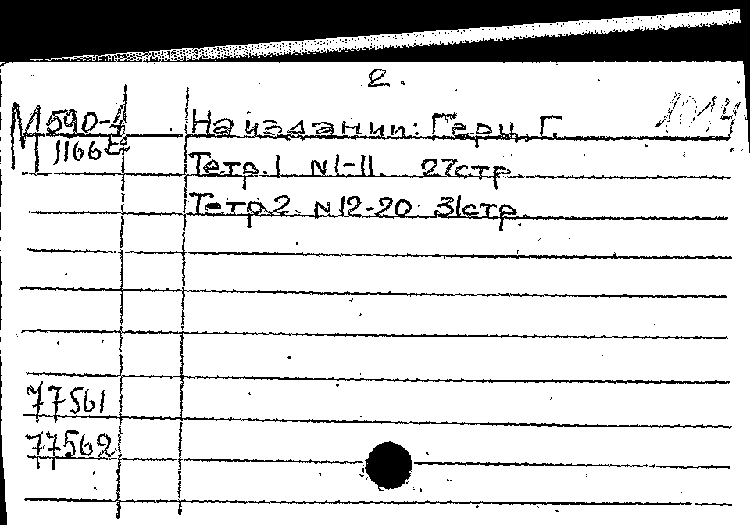 2.
1014
М 590-4 На издании: Герц. Г.
1166
Тетр. 1 N1-11. 27стр.
Тетр 2. N12-20 31стр.
77561
77562